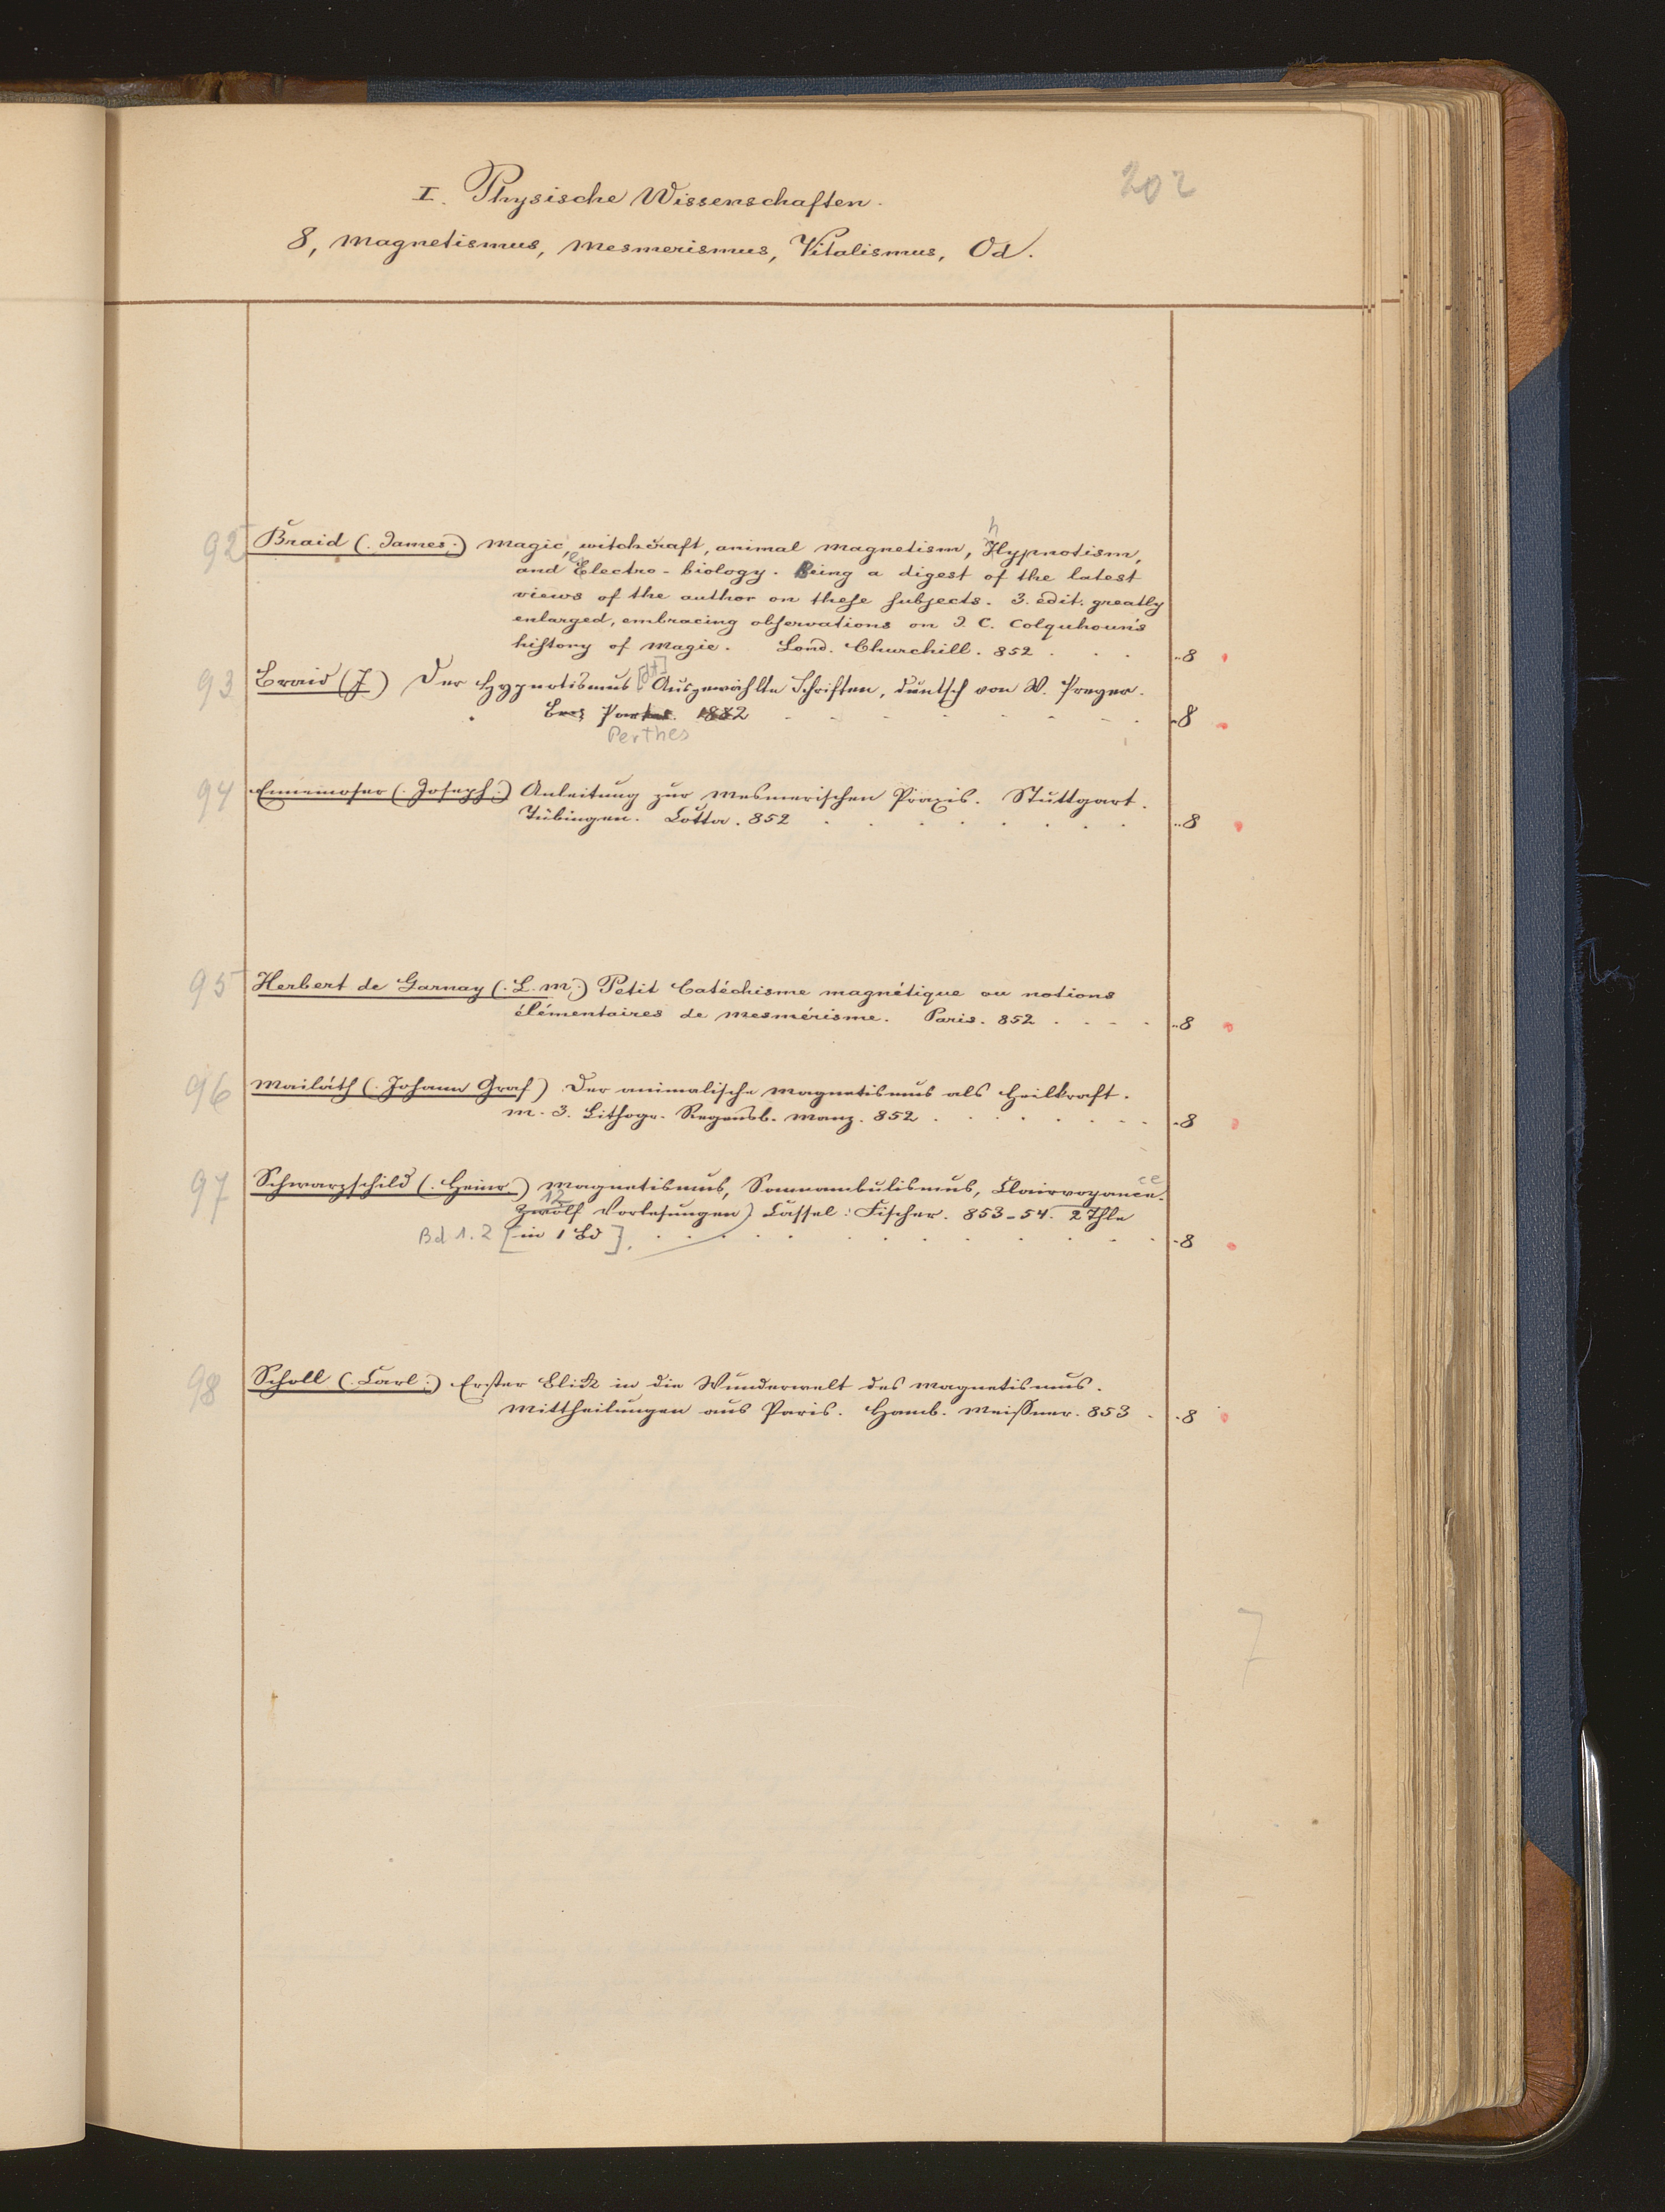 202
I. Physische Wissenschaften.
8, Magnetismus, Mesmerismus, Vitalismus, Od.
h
92 Braid (. James.) Magic, witchcraft, animal Magnetism, Hypnotism,
and Electro-biology. Being a digest of the latest
views of the author on these subjects. 3. edit. greatly
enlarged, embracing observations on J. C. Colquhoun's
history of Magie. Lond. Churchill. 852 . . . -8
93 Braid (J) Der Hypnotismus. [dt] Ausgewählte Schriften, deutsch von W. Preyer.
1882 -8
Perthes
94 Ennemoser (. Joseph.) Anleitung zur Mesmerischen Praxis. Stuttgart.
Tübingen. Cotta. 852 . . . . . . . . -8
95 Herbert de Garnay (. L. M.) Petit Catéchisme magnétique ou notions
élémentaires de Mesmérisme. Paris. 852 . . . . -8
96 Mailáth (. Johann Graf) Der animalische Magnetismus als Heilkraft.
M. 3. Lithogr. Regensb. Manz. 852 . . . . . . . -8
97 Schwarzschild (. Heinr.) Magnetismus, Somnambulismus, Clairvoyance.
ce
12
Zwölf Vorlesungen) Cassel: Fischer. 853-54. 2 Thle
Bd 1. 2 [in 1 Bd]. . . . . . . . . . -8
98 Scholl (. Carl.) Erster Blick in die Wunderwelt des Magnetismus.
Mittheilungen aus Paris. Hamb. Meissner. 853 . -8
7